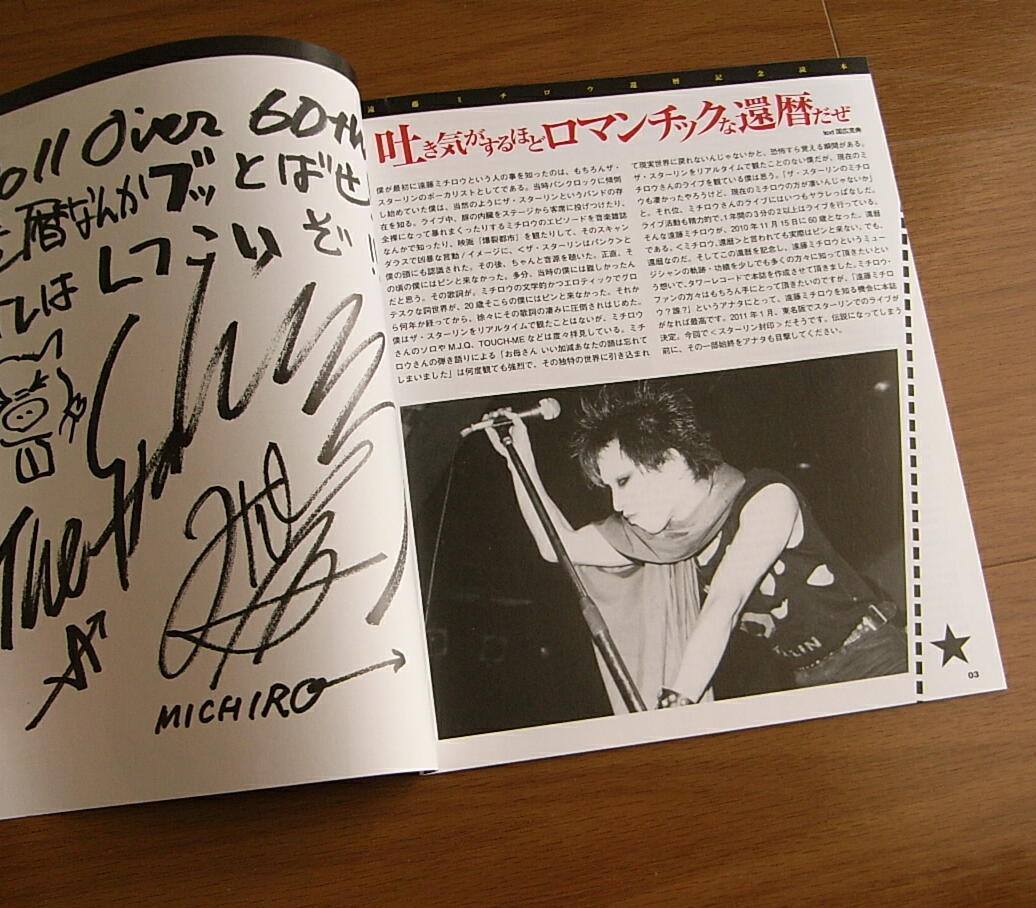 oll Over 60th
暦なんかブッとばせ
はしつこいぞ!!
The
MICHIRO
遠藤ミチロウ還暦記念読本
吐き気がするほどロマンチックな還暦だぜ
text 国広克典
僕が最初に遠藤ミチロウという人の事を知ったのは、もちろんザ・
スターリンのボーカリストとしてである。当時パンクロックに傾倒
し始めていた僕は、当然のようにザ・スターリンというバンドの存
在を知る。ライブ中、豚の内臓をステージから客席に投げつけたり、
全裸になって暴れまくったりするミチロウのエピソードを音楽雑誌
なんかで知ったり、映画『爆裂都市』を観たりして、そのスキャン
ダラスで凶暴な言動／イメージに、＜ザ・スターリンはパンク＞と
僕の頭にも認識された。その後、ちゃんと音源を聴いた。正直、そ
の頃の僕にはピンと来なかった。多分、当時の僕には難しかったん
だと思う。その歌詞が。ミチロウの文学的かつエロティックでグロ
テスクな詞世界が、20歳そこらの僕にはピンと来なかった。それか
ら何年か経ってから、徐々にその歌詞の凄みに圧倒されはじめた。
僕はザ・スターリンをリアルタイムで観たことはないが、ミチロウ
さんのソロやM.J.Q、TOUCH-MEなどは度々拝見している。ミチ
ロウさんの弾き語りによる「お母さん いい加減あなたの顔は忘れて
しまいました」は何度観ても強烈で、その独特の世界に引き込まれ
て現実世界に戻れないんじゃないかと、恐怖すら覚える瞬間がある。
ザ・スターリンをリアルタイムで観たことのない僕だが、現在のミ
チロウさんのライブを観ている僕は思う。「ザ・スターリンのミチロ
ウも凄かったやろうけど、現在のミチロウの方が凄いんじゃないか」
と。それ位、ミチロウさんのライブにはいつもヤラレっぱなしだ。
ライブ活動も精力的で、1年間の3分の2以上はライブを行っている。
そんな遠藤ミチロウが、2010年11月15日に60歳となった。還暦
である。＜ミチロウ、還暦＞と言われても実際はピンと来ない。でも、
還暦なのだ。そしてこの還暦を記念し、遠藤ミチロウというミュー
ジシャンの軌跡・功績を少しでも多くの方々に知って頂きたいとい
う想いで、タワーレコードで本誌を作成させて頂きました。ミチロウ・
ファンの方々はもちろん手にとって頂きたいのですが、「遠藤ミチロ
ウ？誰？」というアナタにとって、遠藤ミチロウを知る機会に本誌
がなれば最高です。2011年1月、東名阪でスターリンでのライブが
決定。今回で＜スターリン封印＞だそうです。伝説になってしまう
前に、その一部始終をアナタも目撃してください。
LIN
03